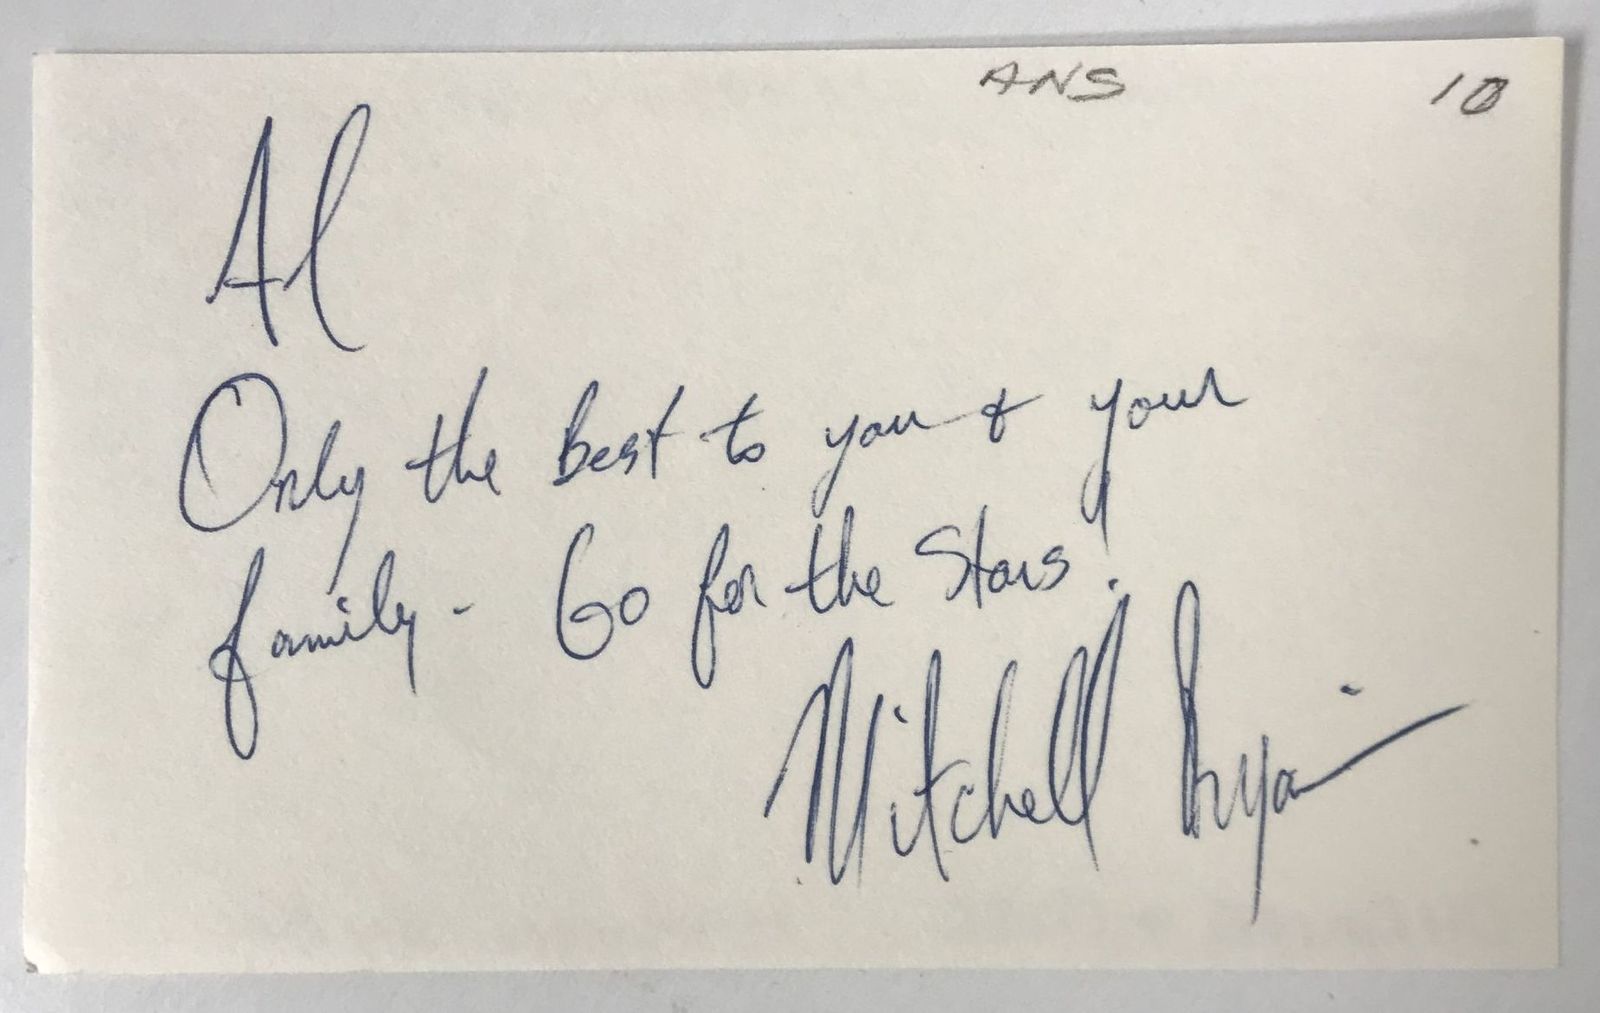 ANS 10
Al
Only the Best to you & your
family - Go for the Stars!
Mitchell Ryan